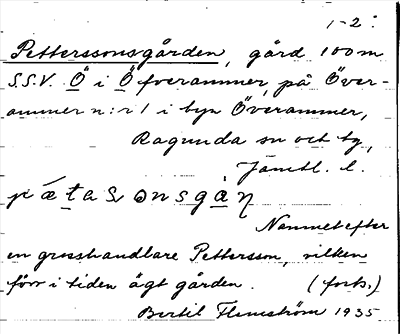 1-2.
Petterssonsgården, gård 100 m
S.S.V. Ö i Överammer, på Över-
ammer n:r 1 i byn Överammer,
Ragunda sn och tg,
Jämtl. l.
Namnet efter
en grosshandlare Pettersson, vilken
förr i tiden ägt gården. (forts.)
Bertil Flemström 1935